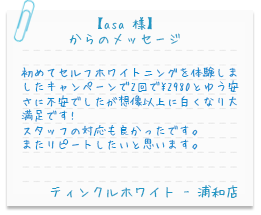 【asa 様】
からのメッセージ
初めてセルフホワイトニングを体験しま
したキャンペーンで2回で¥2980とゆう安
さに不安でしたが想像以上に白くなり大
満足です!
スタッフの対応も良かったです。
またリピートしたいと思います。
ティンクルホワイト - 浦和店